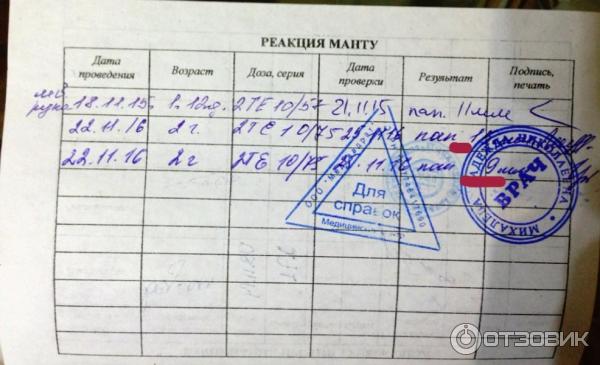 РЕАКЦИЯ МАНТУ
Дата проведения Возраст Доза, серия Дата проверки Результат Подпись, печать
18.11.15 2ТЕ 10/57 21.11.15 пап. 11 мм
22.11.16 2 г. 2ТЕ 10/75 пап.
22.11.16 2 г 2ТЕ 10/75 11.16 пап 9 мм
Для справок
ВРАЧ
НАДЕЖДА НИКОЛАЕВНА
ОТЗОВИК